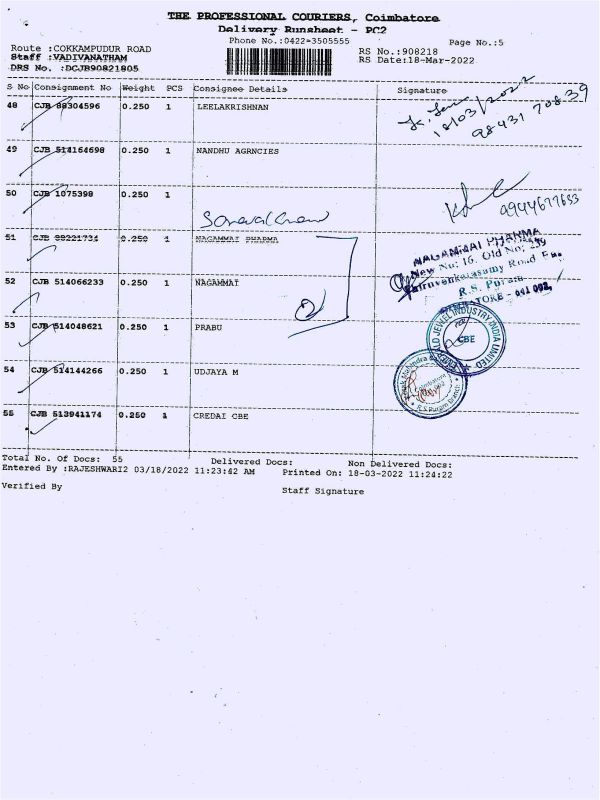 THE PROFESSIONAL COURIERS, Coimbatore
Delivery Runsheet - PC2
Phone No.:0422-3505555
Page No.:5
Route :COKKAMPUDUR ROAD
RS No.:908218
Staff :VADIVANATHAM
RS Date:18-Mar-2022
DRS No. :DCJB90821805
S No Consignment No Weight PCS Consignee Details Signature
48 CJB 88304596 0.250 1 LEELAKRISHNAN
18/03/2022
98431 70839
49 CJB 514164698 0.250 1 NANDHU AGRNCIES
50 CJB 1075398 0.250 1
9944677633
51 CJB 88221731 0.250 1 NAGAMMAT PHARMA
NAGAMMAI PHARMA
New No: 16, Old No: 259
Thiruvenkatasamy Road
R.S. Puram
52 CJB 514066233 0.250 1 NAGAMMAT
53 CJB 514048621 0.250 1 PRABU
EMERALD JEWEL INDUSTRY INDIA LIMITED
CBE
54 CJB 514144266 0.250 1 UDJAYA M
Coimbatore
R.S.Puram Branch
55 CJB 513941174 0.250 1 CREDAI CBE
Total No. Of Docs: 55 Delivered Docs: Non Delivered Docs:
Entered By :RAJESHWARI2 03/18/2022 11:23:42 AM Printed On: 18-03-2022 11:24:22
Verified By
Staff Signature